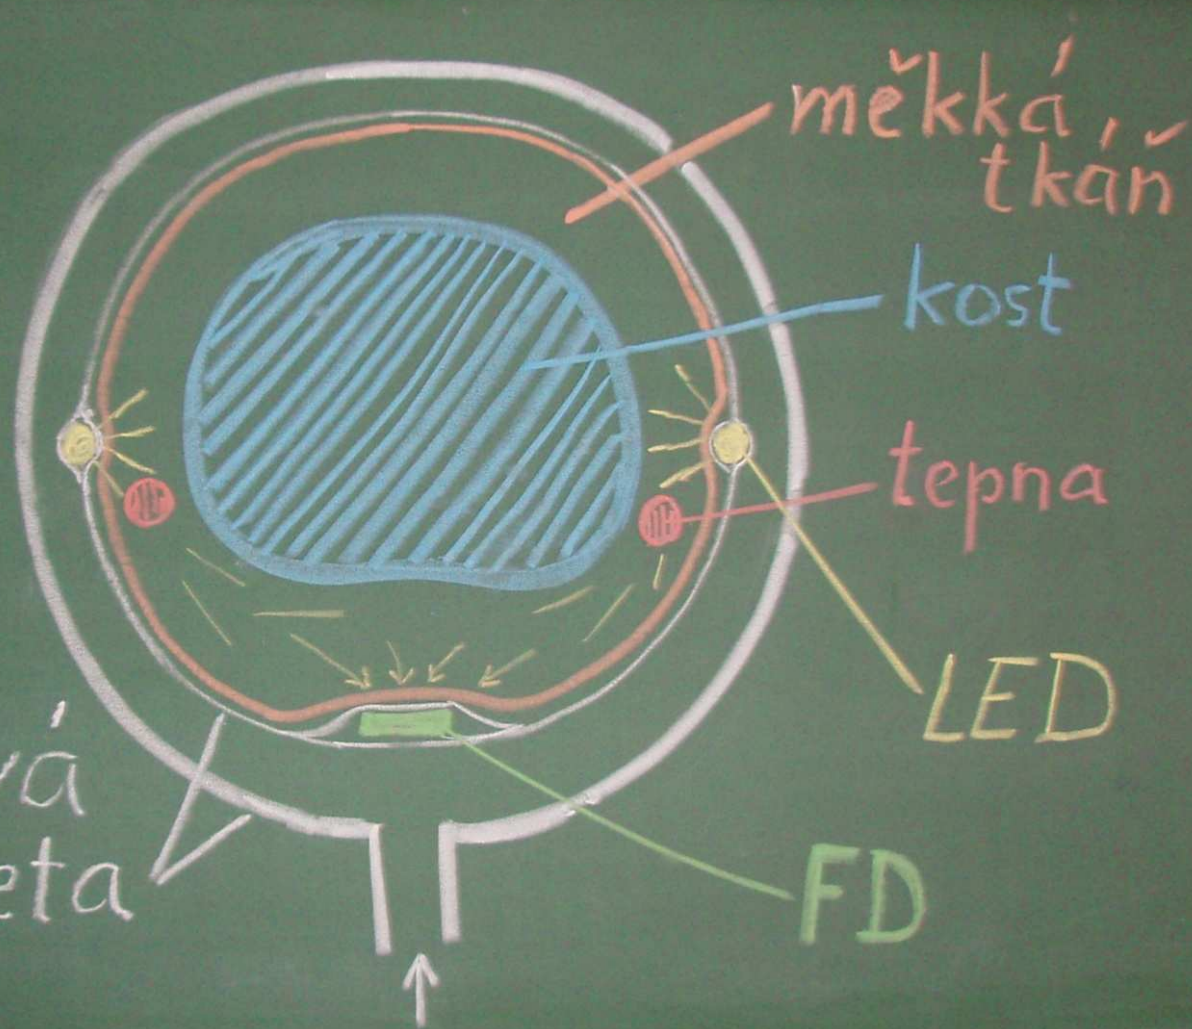 měkká
tkáň
kost
tepna
LED
FD